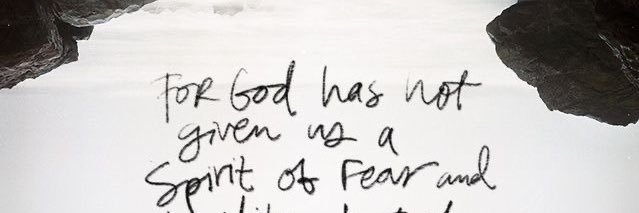 For God has not
given us a
Spirit of Fear and